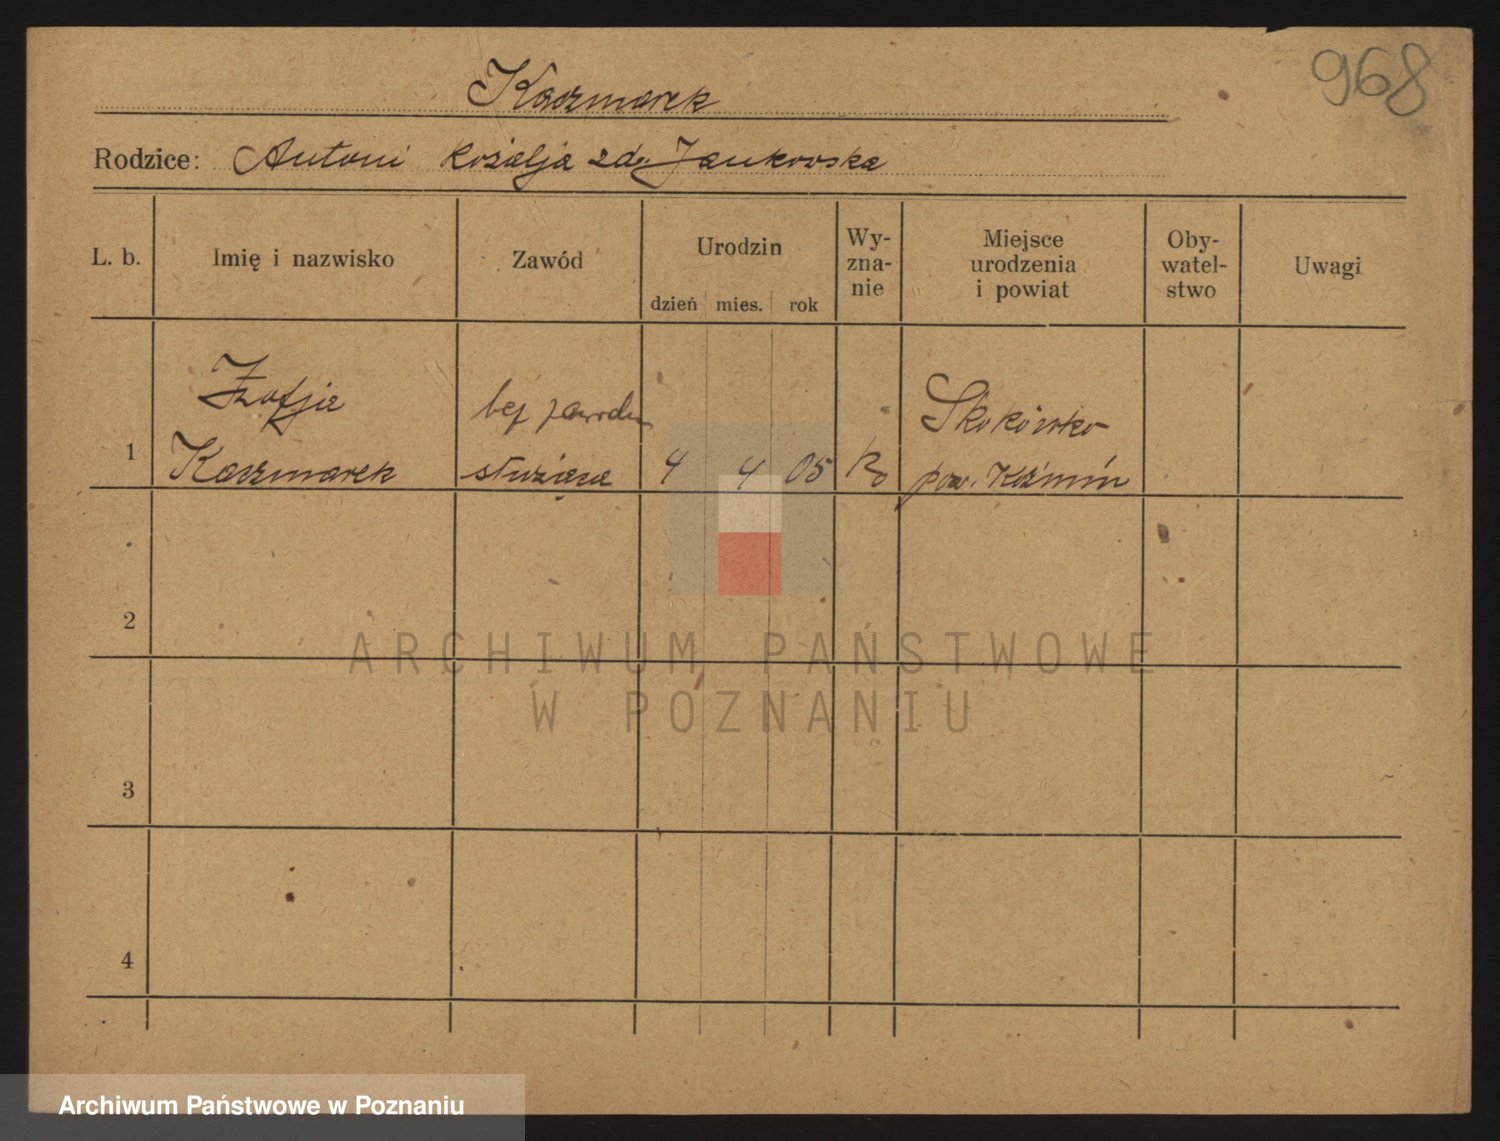 968
Kaczmarek
Rodzice: Antoni Rozalja zd. Jankowska
L. b. Imię i nazwisko Zawód Urodzin dzień mies. rok Wy-zna-nie Miejsce urodzenia i powiat Oby-watel-stwo Uwagi
Zofja bez zawodu Skokówko
1 Kaczmarek służąca 4 4 05 pow. Koźmin
2
ARCHIWUM PAŃSTWOWE
W POZNANIU
3
4
Archiwum Państwowe w Poznaniu